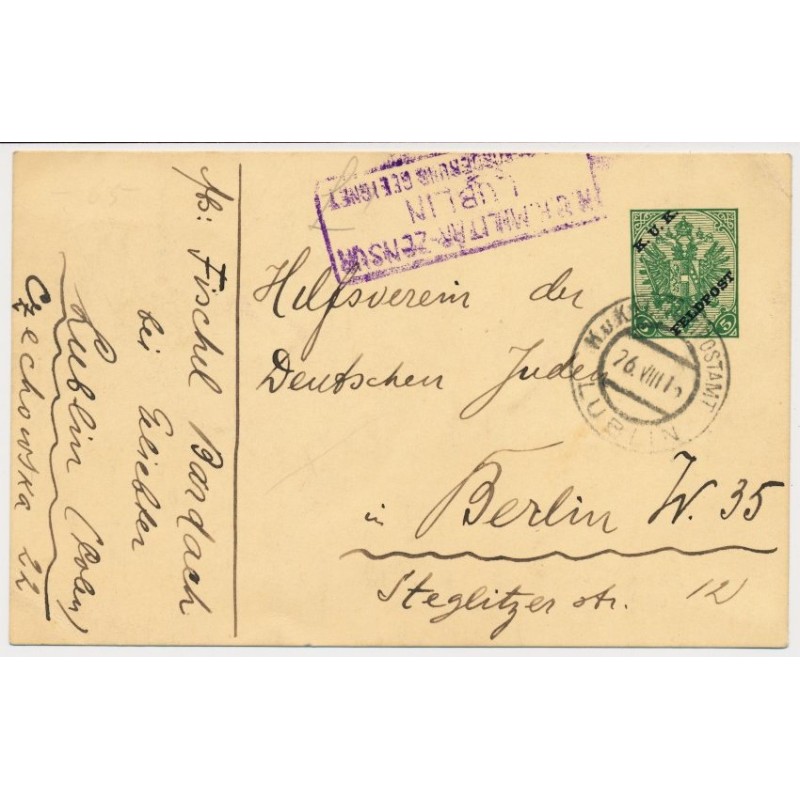 Ab: Fischel Bardach
bei Eliebter
Lublin (Polen)
Czechowska 22
K.U.K. MILITÄR-ZENSUR
LUBLIN
BEFÖRDERUNG GEEIGNET
K.U.K.
FELDPOST
5 5
K.u.K. POSTAMT
26.VIII.15
LUBLIN
Hilfsverein der
Deutschen Juden
in Berlin W. 35
Steglitzerstr. 12